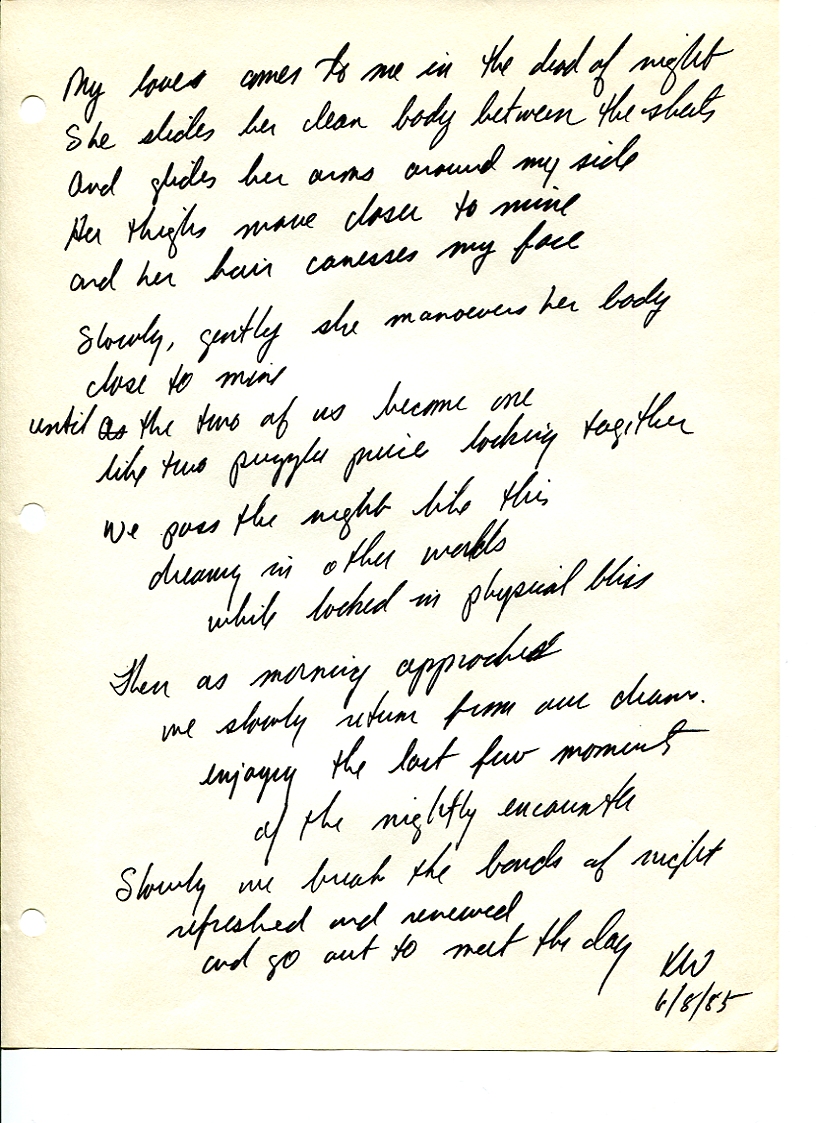 My love comes to me in the dead of night
She slides her clean body between the sheets
And glides her arms around my side
Her thighs move closer to mine
and her hair caresses my face
Slowly, gently she manoevers her body
close to mine
until as the two of us become one
like two puzzle piece locking together
We pass the night like this
dreamy in other worlds
while locked in physical bliss
Then as morning approches
we slowly return from our dreams.
enjoying the last few moments
of the nightly encounter
Slowly we break the bonds of night
refreshed and renewed
and go out to meet the day
KW
6/8/85